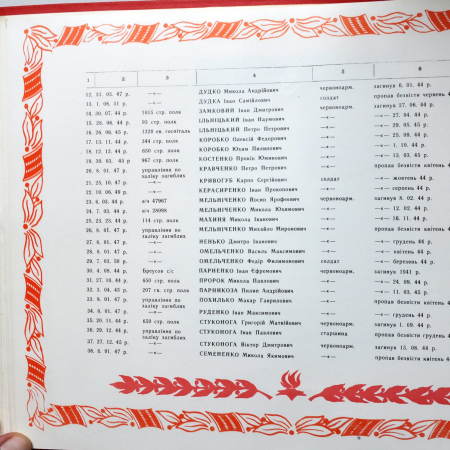 1 2 3 4 5 6
12. 31. 03. 47 р. —«— ДУДКО Микола Андрійович червоноарм. загинув 6. 01. 44 р.
13. 1. 08. 51 р. —«— ДУДКА Іван Самійлович солдат пропав безвісти червень 4
14. 30. 07. 44 р. 1015 стр. полк ЗАМКОВИЙ Іван Дмитрович червоноарм. загинув 27. 06. 44 р.
15. 25. 06. 44 р. 93 стр. полк ІЛЬНІЦЬКИЙ Іван Наумович —«— —«— 27. 04. 44 р.
16. 26. 06. 45 р. 1320 ев. госпіталь ІЛЬНІЦЬКИЙ Петро Петрович —«— —«— 29. 05. 45 р.
17. 13. 11. 44 р. 344 стр. полк КОРОБКО Олексій Федорович —«— —«— 25. 09. 44 р.
18. 12. 12. 44 р. 650 стр. полк КОРОБКО Юхим Пилипович —«— —«— 1. 10. 44 р.
19. 30. 03. 45 р. 967 стр. полк КОСТЕНКО Прокіп Юхимович —«— —«— 13. 03. 45 р.
20. 8. 01. 47 р. управління по КРАВЧЕНКО Петро Петрович —«— пропав безвісти квітень 4
заліку загиблих
21. 25. 10. 47 р. —«— КРИВОГУБ Карпо Сергійович солдат —«— жовтень 44 р.
22. 10. 06. 49 р. —«— КЕРАСИРЕНКО Іван Прокопович червоноарм. —«— серпень 44 р.
23. 6. 03. 44 р. в/ч 47967 МЕЛЬНІЧЕНКО Йосип Ярофеєвич червоноарм. загинув 8. 02. 44 р.
24. 7. 03. 44 р. в/ч 28098 МЕЛЬНІЧЕНКО Микола Юхимович —«— —«— 12. 02. 44 р.
25. 23. 23. 44 р. 114 стр. полк МАХИНЯ Микола Іванович —«— —«— 16. 11. 44 р.
26. 6. 01. 47 р. управління по МЕЛЬНІЧЕНКО Михайло Миронович —«— пропав безвісти квітень
заліку загиблих
27. 6. 01. 47 р. —«— НЕНЬКО Дмитро Іванович —«— —«— грудень 44
28. 9. 01. 47 р. —«— ОМЕЛЬЧЕНКО Василь Максимович —«— —«— квітень 44 р.
29. 7. 03. 50 р. —«— ОМЕЛЬЧЕНКО Федір Филимонович солдат —«— березень 44 р.
30. 4. 09. 44 р. Брєусов с/с ПАРНЕНКО Іван Єфремович червоноарм. загинув 1941 р.
31. 27. 10. 44 р. 650 стр. полк ПРОРОК Микола Павлович —«— —«— 24. 09. 44 р.
32. 5. 04. 45 р. 207 гв. стр. полк ПАРНЯКОЗА Пилип Андрійович —«— —«— 11. 03. 45 р.
33. 8. 01. 47 р. управління по ПОХИЛЬКО Макар Гаврилович —«— пропав безвісти квітень
заліку загиблих
34. 8. 01. 47 р. —«— РУДЕНКО Іван Максимович —«— —«— грудень 44 р.
35. 20. 11. 44 р. 650 стр. полк СТУКОНОГА Григорій Матвійович червоноарм. загинув 1. 09. 44 р.
36. 29. 12. 44 р. управління по СТУКОНОГА Іван Павлович старшина пропав безвісти грудень
заліку загиблих
37. 27. 12. 45 р. —«— СТУКОНОГА Віктор Дмитрович червоноарм. загинув 15. 08. 44 р.
38. 8. 01. 47 р. —«— СЕМЕНЕНКО Микола Якимович —«— пропав безвісти квітень